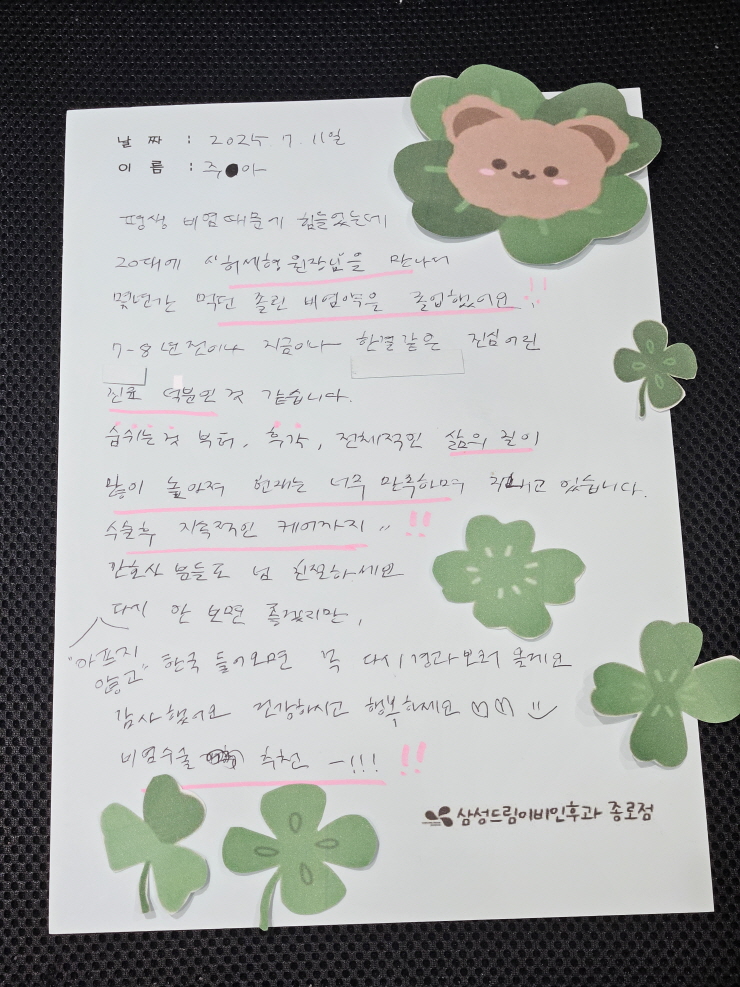 날 짜 : 2025. 7. 11일
이 름 : 주 아
평생 비염때문에 힘들었는데
20대에 허세형 원장님을 만나
몇년간 먹던 졸린 비염약을 졸업했어요!!
7-8년전이나 지금이나 한결같은 진심어린
진료 덕분인 것 같습니다.
숨쉬는것 부터, 후각, 전체적인 삶의 질이
많이 높아져 현재는 너무 만족하며 지내고 있습니다.
수술후 지속적인 케어까지 !!
간호사 분들도 넘 친절하세요
다시 안 보면 좋겠지만,
"아프지 않고" 한국 들어오면 꼭 다시 경과보러 올게요
감사했어요 건강하시고 행복하세요 ♡♡ :)
비염수술 추천 -!!! !!
삼성드림이비인후과 종로점